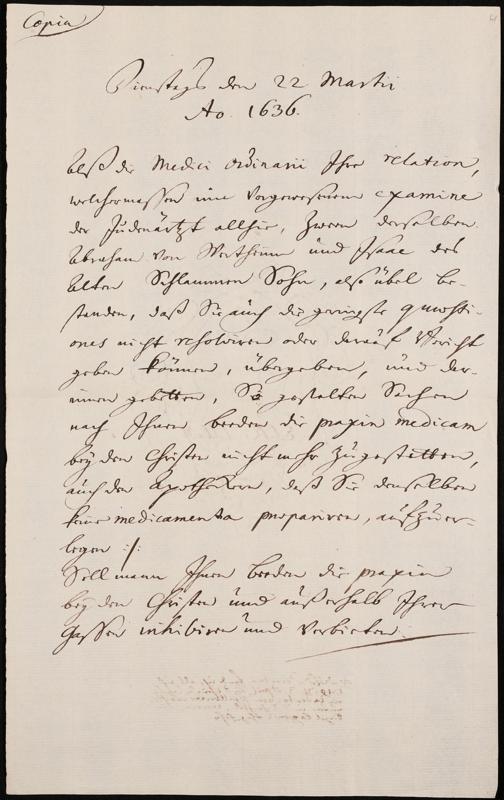 Copia
Dienstags den 22 Martii
Ao. 1636.
Alß die Medici ordinarii Ihre relation,
welchermassen im vorgewesenem examine
der Judenärtzt allhie, zween derselben
Abraham von Wertheim und Isaac des
Alten Schlammen Sohn, also übel be-
standen, daß Sie auch die geringste quaesti-
ones nicht resolviren oder darauf Bericht
geben können, übergeben, und dar-
innen gebetten, Sie gestalten Sachen
nach Ihnen beeden die praxin medicam
bey den Christen nicht mehr zugestatten,
auch den Apothekern, daß Sie denselben
keine medicamenta praepariren, aufzuer-
legen :/:
Soll mann Ihnen beeden die praxin
bey den Christen und außerhalb Ihrer
Gassen inhibiren und verbieten.